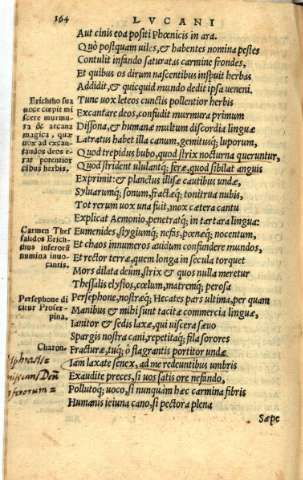 164 LVCANI
Aut cinis eoa positi Phœnicis in ara.
Quò postquam uiles, & habentes nomina pestes
Contulit infando saturatas carmine frondes,
Et quibus os dirum nascentibus inspuit herbas
Addidit, & quicquid mundo dedit ipsa ueneni.
Tunc uox leteos cunctis pollentior herbis
Excantare deos, confudit murmura primum
Dissona, & humanæ multum discordia linguæ
Latratus habet illa canum, gemitusq; luporum,
Quod trepidus bubo, quod strix nocturna queruntur,
Quod strident ululantq; feræ, quod sibilat anguis
Exprimit: & planctus illisæ cautibus undæ,
Syluarumq; sonum, fractæq; tonitrua nubis,
Tot rerum uox una fuit, mox cætera cantu
Explicat Aemonio, penetratq; in tartara lingua:
Eumenides, stygiumq; nefas, pœnæq; nocentum,
Et chaos innumeros auidum confundere mundos,
Et rector terræ, quem longa in secula torquet
Mors dilata deum, strix & quos nulla meretur
Thessalis elysios, cœlum, matremq; perosa
Persephone, nostræq; Hecates pars ultima, per quam
Manibus & mihi sunt tacitæ commercia linguæ,
Ianitor & sedis laxæ, qui uiscera sæuo
Spargis nostra cani, repetitaq; fila sorores
Fracturæ, tuq; ô flagrantis portitor undæ
Iam laxate senex, ad me redeuntibus umbris
Exaudite preces, si uos satis ore nefando,
Pollutoq; uoco, si nunquam hæc carmina fibris
Humanis ieiuna cano, si pectora plena
Sæpe
Erichtho sua
uoce cœpit mi
scere murmu-
ra & arcana
magica, qua
uox ad excan-
tandos deos e-
rat potentior
cibus herbis.
Carmen Thes
salidos Erich-
thus inferorū
numina inuo-
cantis.
Persephone di
citur Proser-
pina.
Charon-